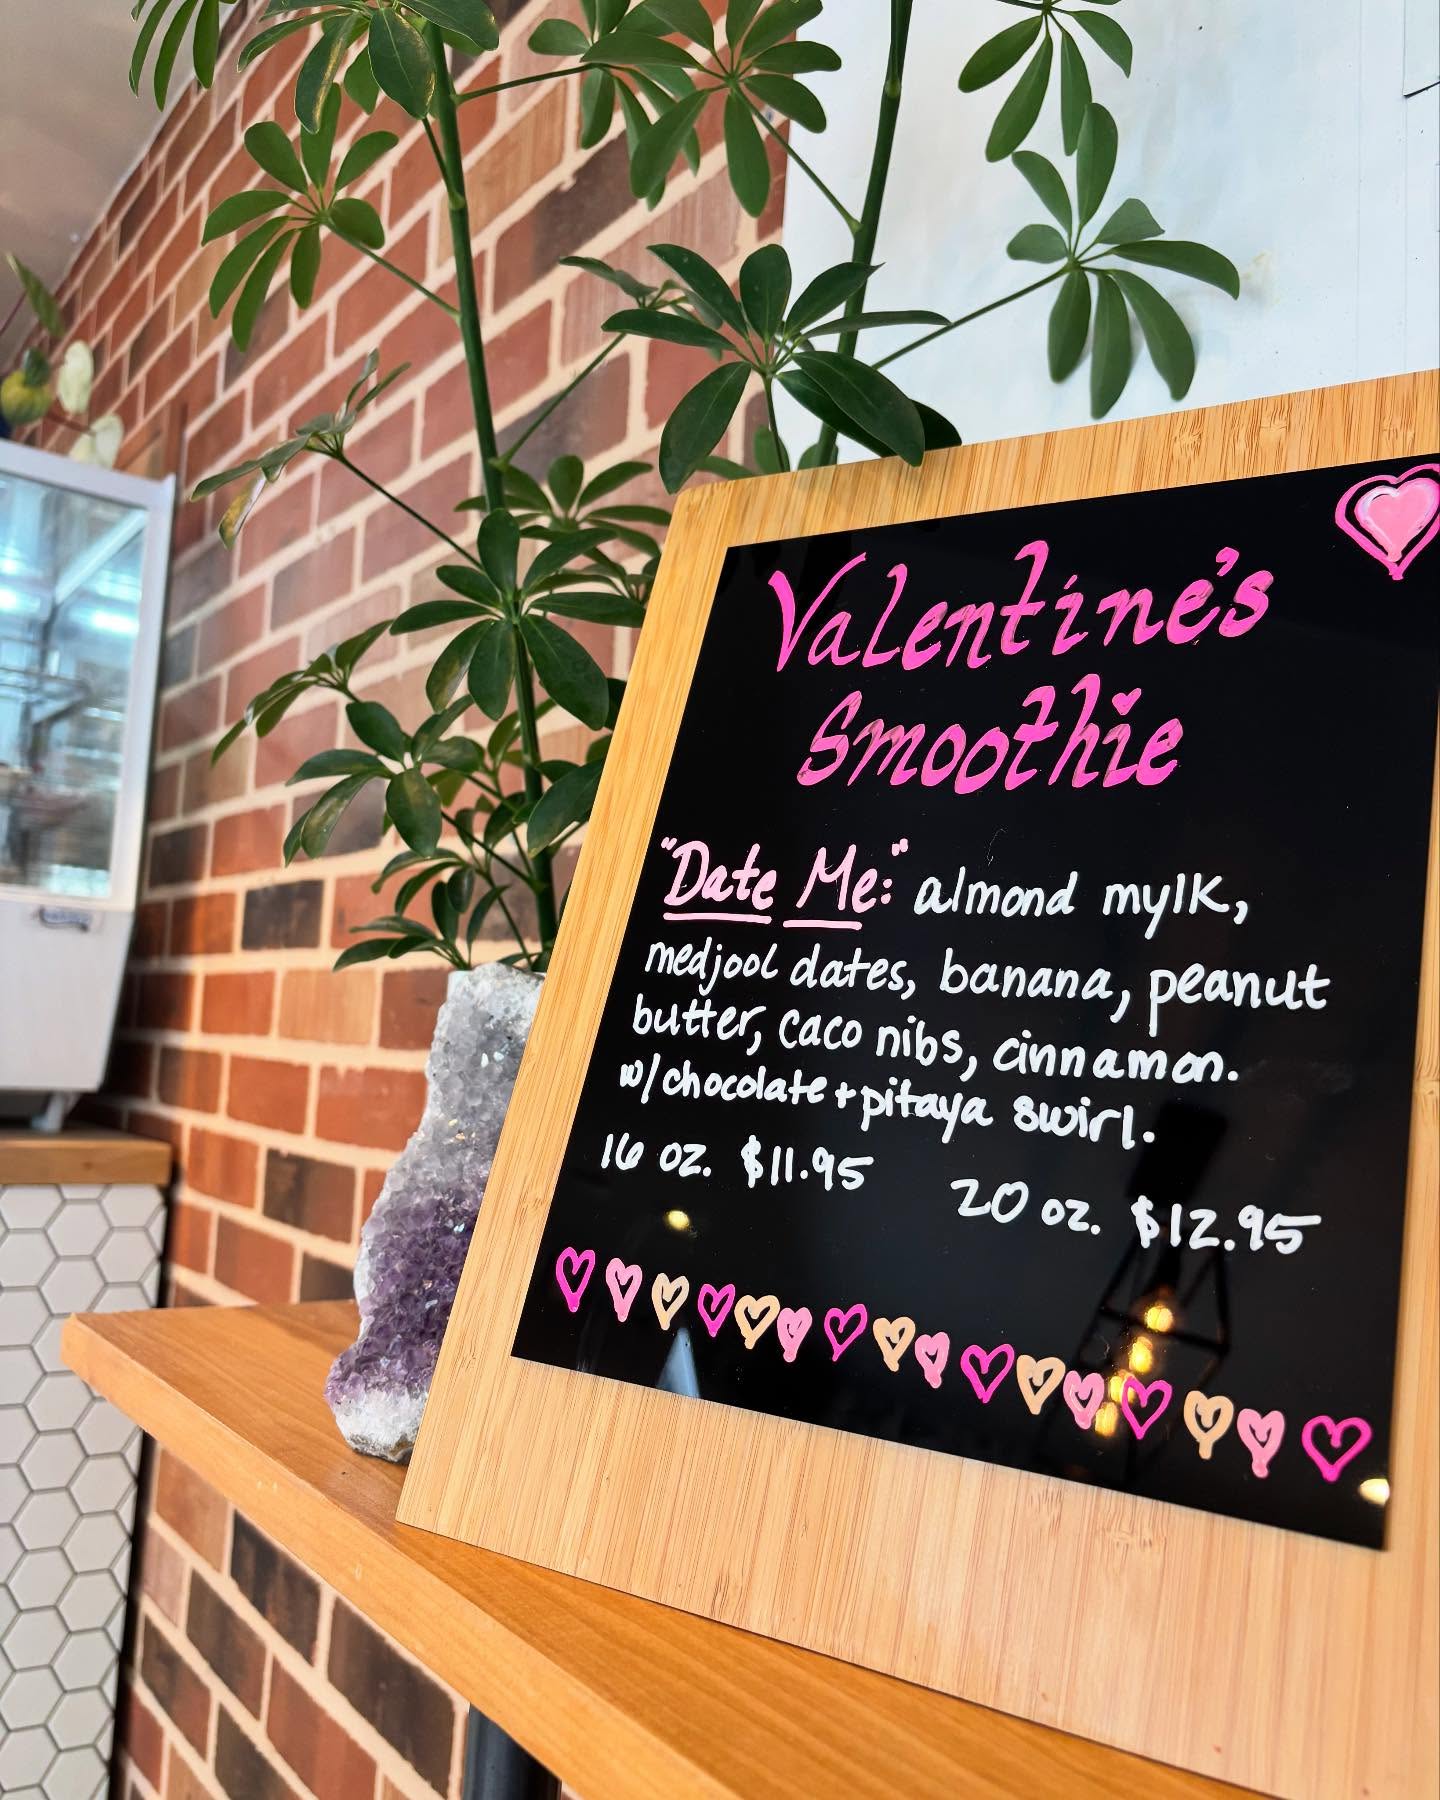 Valentine's
Smoothie
"Date Me:" almond mylk,
medjool dates, banana, peanut
butter, caco nibs, cinnamon.
w/chocolate + pitaya swirl.
16 oz. $11.95 20 oz. $12.95